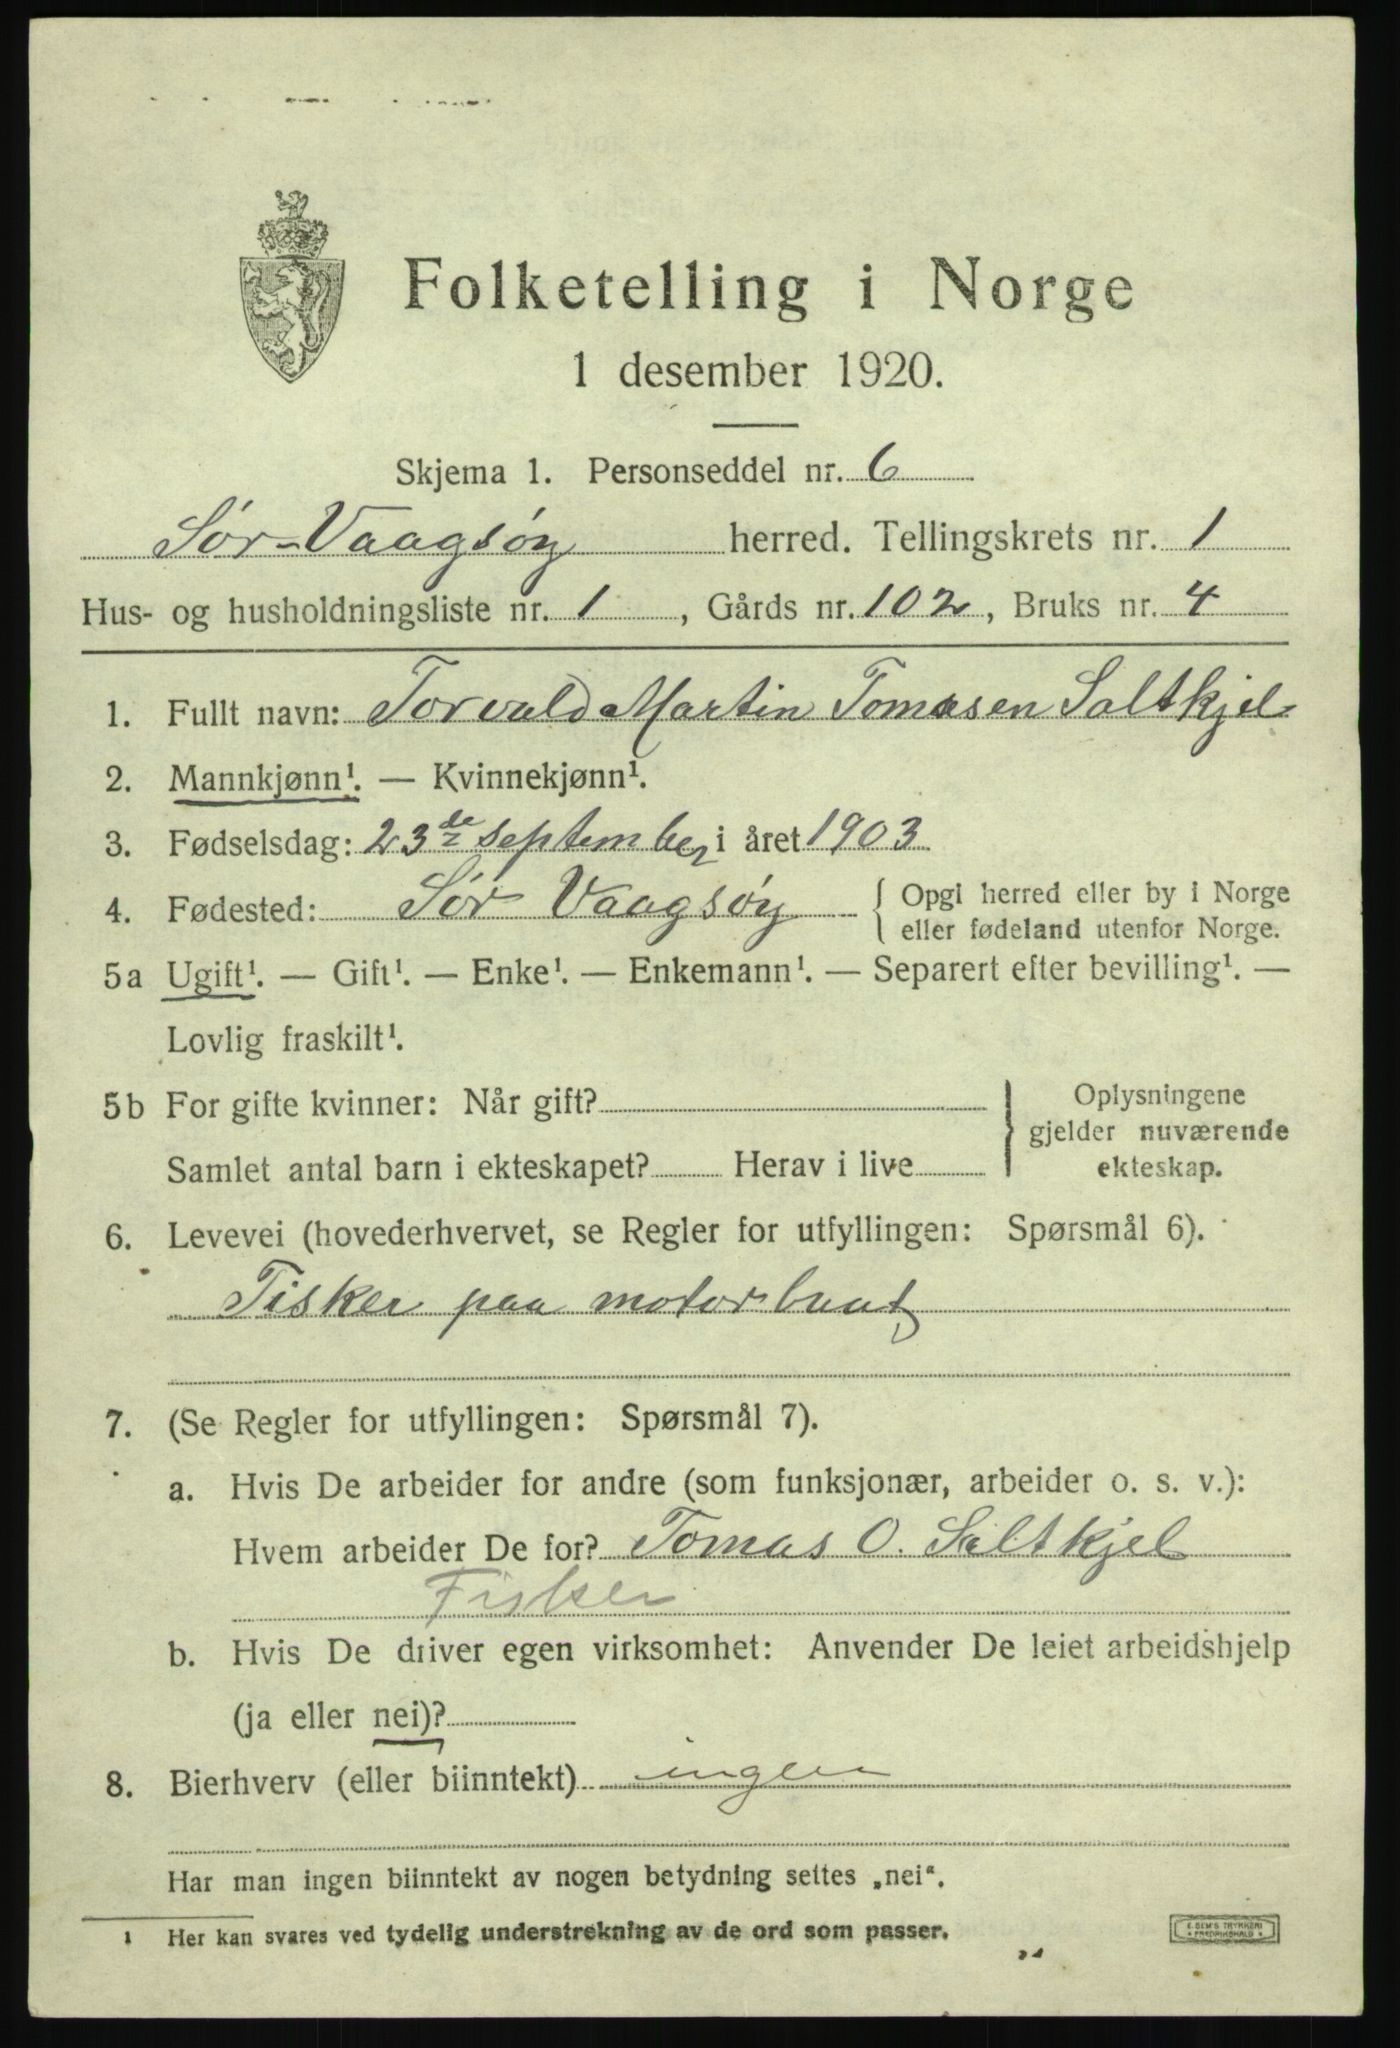 Folketelling i Norge
1 desember 1920.
Skjema 1. Personseddel nr. 6
Sør-Vaagsøy herred. Tellingskrets nr. 1
Hus- og husholdningsliste nr. 1, Gårds nr. 102, Bruks nr. 4
1. Fullt navn: Torvald Martin Tomasen Saltkjel
2. Mannkjønn¹. — Kvinnekjønn¹.
3. Fødselsdag: 23de september i året 1903
4. Fødested: Sør Vaagsøy { Opgi herred eller by i Norge
eller fødeland utenfor Norge.
5a Ugift¹. — Gift¹. — Enke¹. — Enkemann¹. — Separert efter bevilling¹. —
Lovlig fraskilt¹.
5b For gifte kvinner: Når gift? } Oplysningene
gjelder nuværende
Samlet antal barn i ekteskapet? Herav i live ekteskap.
6. Levevei (hovederhvervet, se Regler for utfyllingen: Spørsmål 6).
Fisker paa motorbaat
7. (Se Regler for utfyllingen: Spørsmål 7).
a. Hvis De arbeider for andre (som funksjonær, arbeider o. s. v.):
Hvem arbeider De for? Tomas O. Saltkjel
Fisker
b. Hvis De driver egen virksomhet: Anvender De leiet arbeidshjelp
(ja eller nei)?
8. Bierhverv (eller biinntekt) ingen
Har man ingen biinntekt av nogen betydning settes „nei“.
1 Her kan svares ved tydelig understrekning av de ord som passer.
E. SEM'S TRYKKERI
FREDRIKSHALD